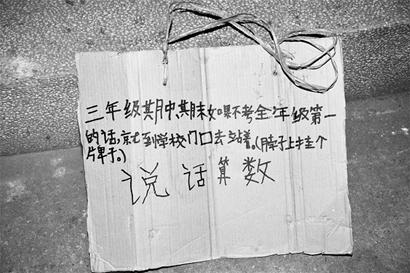 三年级期中、期末如果不考全年级第一
的话,就到学校门口去站着。(脖子上挂个
牌子。)
说话算数